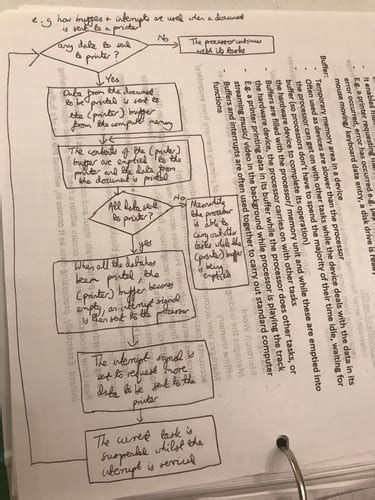 e.g how buffers + interrupts are used when a document
is sent to a printer
any data to send
to printer?
No
The processor continues
with its tasks
Yes
Data from the document
to be printed is sent to
the (printer) buffer
from the computer memory
The contents of the (printer)
buffer are emptied to the
printer and the data from
the document is printed
All data sent
to printer?
No
Meanwhile
the processor
is able to
carry out other
tasks while the
(printer) buffer
is being
emptied
yes
When all the data has
been printed the
(printer) buffer becomes
empty, an interrupt signal
is then sent to the processor
The interrupt signal is
sent to request more
data to be sent to the
printer
The current task is
suspended whilst the
interrupt is serviced
error has occurred e.g.
mouse moving/ keyboard data entry, a disk drive is ready
Buffer:
Temporary memory area in a device
often used as devices are slower than the processor
the processor can get on with other tasks while the device deals with the data in its
buffer (so processors don't have to spend the majority of their time idle, waiting for
the hardware device to complete its operation)
Buffers are filled with the processor/ memory unit and while these are emptied into
the hardware device, the processor carries on with other tasks
E.g. a printer printing data in its buffer while the processor does other tasks, or
streaming music/ video in the background while processor is playing the track
Buffers and interrupts are often used together to carry out standard computer
functions